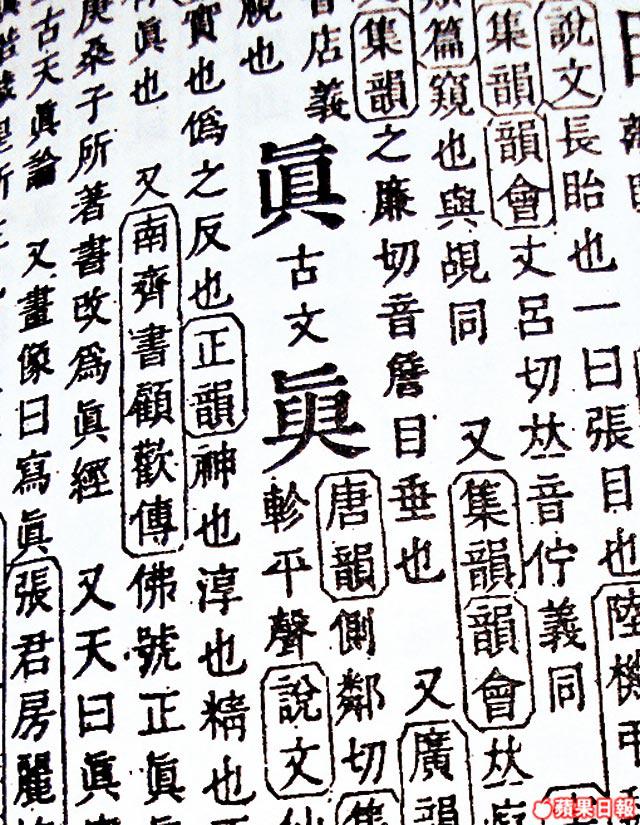 說文長眙也一曰張目也陸機
集韻韻會丈呂切𠀤音佇義同
篇窺也與覘同 又集韻韻會𠀤
集韻之廉切音詹目垂也 又廣韻
音店義
覘也
眞古文
唐韻側鄰切集
軫平聲說文
實也僞之反也正韻神也淳也精也
眞也 又南齊書顧歡傳佛號正眞
庚桑子所著書改爲眞經 又天曰眞
古天眞論 又畫像曰寫眞張君房麗
蘋果日報